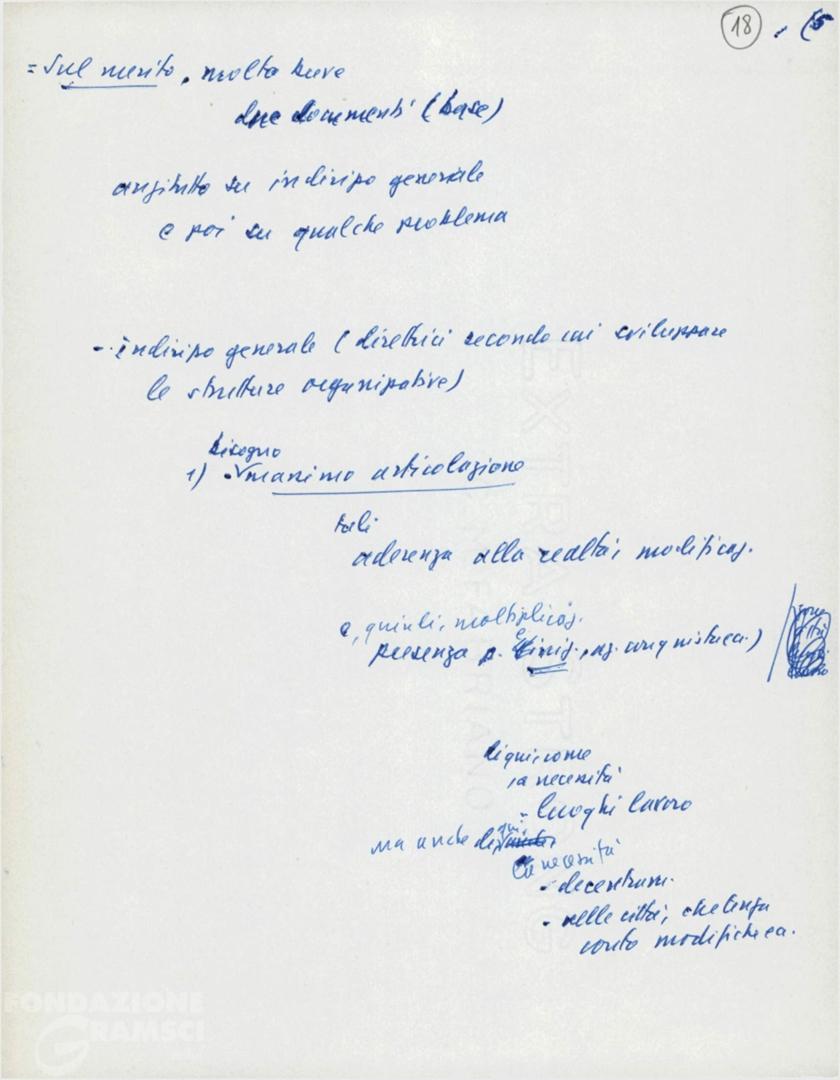 18 . (5
= Sul merito, molto breve
due documenti (base)
anzitutto su indirizzo generale
e poi su qualche problema
- indirizzo generale (direttrici secondo cui sviluppare
le strutture organizzative)
bisogno
1) massimo articolazione
tali
aderenza alla realtà, modificaz.
e, quindi, moltiplicaz.
presenza p. iniz., az. conquista ecc.)
di qui, come
la necessità
- luoghi lavoro
ma anche di qui,
la necessità
- decentram.
- nelle città, che tenga
conto modifiche ecc.
EXTRA STRONG
FABRIANO
FONDAZIONE
GRAMSCI